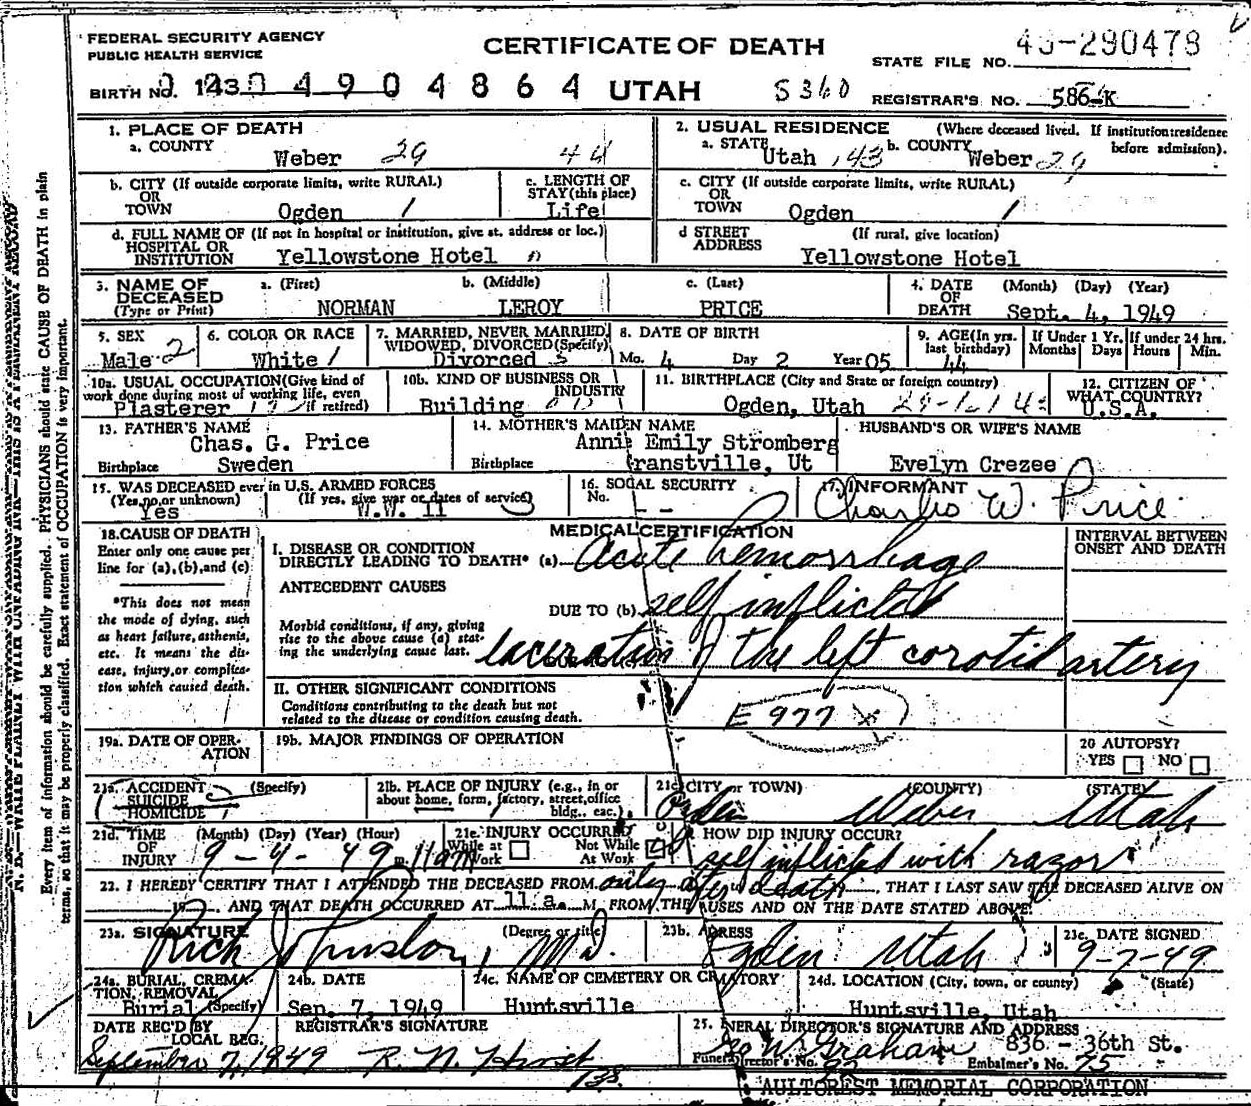 FEDERAL SECURITY AGENCY
PUBLIC HEALTH SERVICE
CERTIFICATE OF DEATH
STATE FILE NO. 49-290478
BIRTH NO. 143 04904864 UTAH S360 REGISTRAR'S NO. 586-K
1. PLACE OF DEATH
a. COUNTY Weber 29 44
2. USUAL RESIDENCE (Where deceased lived. If institution: residence before admission).
a. STATE Utah 43 b. COUNTY Weber 29
b. CITY (If outside corporate limits, write RURAL) OR TOWN Ogden 1
c. LENGTH OF STAY (this place) Life
c. CITY (If outside corporate limits, write RURAL) OR TOWN Ogden 1
d. FULL NAME OF (If not in hospital or institution, give st. address or loc.) HOSPITAL OR INSTITUTION Yellowstone Hotel
d STREET ADDRESS (If rural, give location) Yellowstone Hotel
3. NAME OF DECEASED (Type or Print) a. (First) NORMAN b. (Middle) LEROY c. (Last) PRICE
4. DATE OF DEATH (Month) (Day) (Year) Sept. 4, 1949
5. SEX Male 2
6. COLOR OR RACE White 1
7. MARRIED, NEVER MARRIED, WIDOWED, DIVORCED (Specify) Divorced
8. DATE OF BIRTH Mo. 4 Day 2 Year 05
9. AGE (In yrs. last birthday) 44
If Under 1 Yr. Months Days
If under 24 hrs. Hours Min.
10a. USUAL OCCUPATION (Give kind of work done during most of working life, even if retired) Plasterer
10b. KIND OF BUSINESS OR INDUSTRY Building
11. BIRTHPLACE (City and State or foreign country) Ogden, Utah
12. CITIZEN OF WHAT COUNTRY? U.S.A.
13. FATHER'S NAME Chas. G. Price
Birthplace Sweden
14. MOTHER'S MAIDEN NAME Annie Emily Stromberg
Birthplace Grantsville, Ut
HUSBAND'S OR WIFE'S NAME
Evelyn Crezee
15. WAS DECEASED ever in U.S. ARMED FORCES
(Yes, no, or unknown) Yes (If yes, give war or dates of service) W.W. II
16. SOCIAL SECURITY No. --
17. INFORMANT Charles W. Price
18. CAUSE OF DEATH
Enter only one cause per line for (a), (b), and (c)
*This does not mean the mode of dying, such as heart failure, asthenia, etc. It means the disease, injury, or complication which caused death.
MEDICAL CERTIFICATION
INTERVAL BETWEEN ONSET AND DEATH
I. DISEASE OR CONDITION DIRECTLY LEADING TO DEATH* (a) Acute hemorrhage
ANTECEDENT CAUSES
DUE TO (b) self inflicted
Morbid conditions, if any, giving rise to the above cause (a) stating the underlying cause last.
laceration of the left corotid artery
II. OTHER SIGNIFICANT CONDITIONS
Conditions contributing to the death but not related to the disease or condition causing death.
E 977 X
19a. DATE OF OPERATION
19b. MAJOR FINDINGS OF OPERATION
20 AUTOPSY? YES NO
21a. ACCIDENT SUICIDE HOMICIDE (Specify)
21b. PLACE OF INJURY (e.g., in or about home, form, factory, street, office bldg., eac.)
21c. CITY or TOWN) (COUNTY) (STATE)
Ogden Weber Utah
21d. TIME OF INJURY (Month) (Day) (Year) (Hour) 9-4-49 m. 11am
21e. INJURY OCCURRED While at Work Not While At Work
HOW DID INJURY OCCUR? self inflicted with razor
22. I HEREBY CERTIFY THAT I ATTENDED THE DECEASED FROM only after death, THAT I LAST SAW THE DECEASED ALIVE ON
AND THAT DEATH OCCURRED AT 11 a. M, FROM THE CAUSES AND ON THE DATE STATED ABOVE.
23a. SIGNATURE (Degree or title) Rich Johnston, MD.
23b. ADRESS Ogden Utah
23c. DATE SIGNED 9-7-49
24a. BURIAL, CREMATION, REMOVAL (Specify) Burial
24b. DATE Sep. 7, 1949
24c. NAME OF CEMETERY OR CREMATORY Huntsville
24d. LOCATION (City, town, or county) (State) Huntsville, Utah
DATE REC'D BY LOCAL REG. September 7, 1949
REGISTRAR'S SIGNATURE
25. FUNERAL DIRECTOR'S SIGNATURE AND ADDRESS
Geo W. Graham 836 - 36th St.
Funeral Director's No. Embalmer's No. 75
AULTOREST MEMORIAL CORPORATION
N. B.—WRITE PLAINLY WITH UNFADING INK—THIS IS A PERMANENT RECORD
Every item of information should be carefully supplied. PHYSICIANS should state CAUSE OF DEATH in plain
terms, so that it may be properly classified. Exact statement of OCCUPATION is very important.